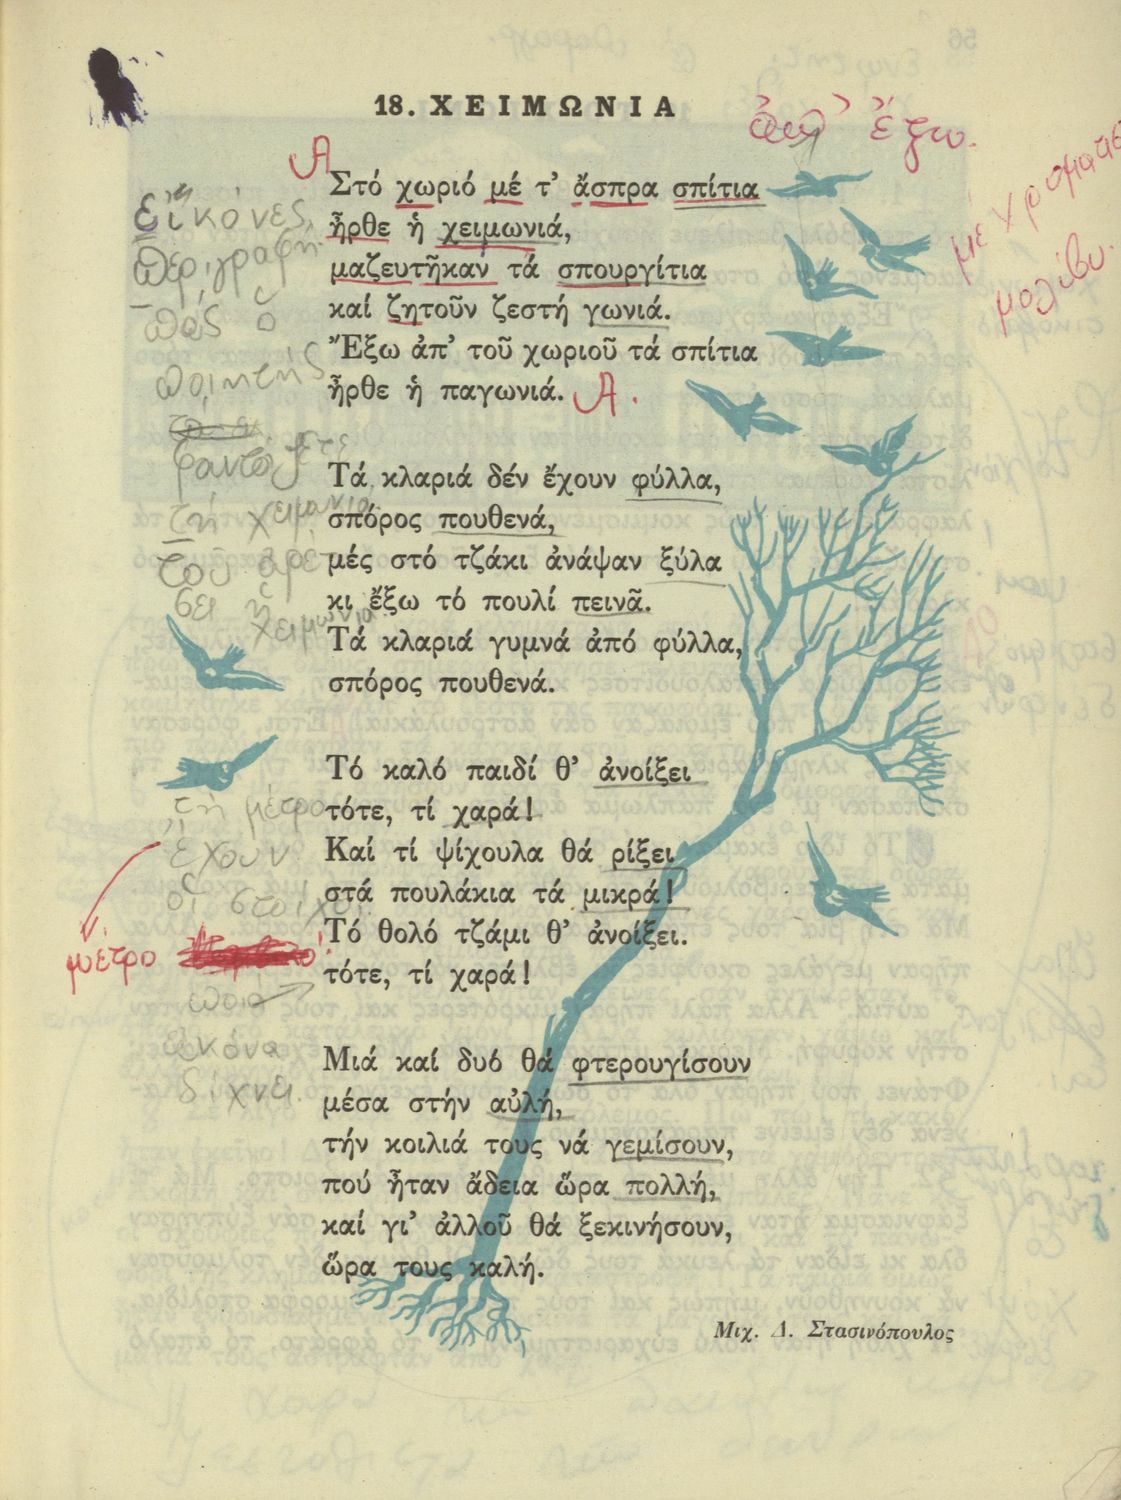 18. ΧΕΙΜΩΝΙΑ
ἀπ' ἔξω.
με χρωματισ
μολύβι.
Α
Στό χωριό μέ τ' ἄσπρα σπίτια
ἦρθε ἡ χειμωνιά,
μαζευτῆκαν τά σπουργίτια
καί ζητοῦν ζεστή γωνιά.
Ἔξω ἀπ' τοῦ χωριοῦ τά σπίτια
ἦρθε ἡ παγωνιά. Α.
Τά κλαριά δέν ἔχουν φύλλα,
σπόρος πουθενά,
μές στό τζάκι ἀνάψαν ξύλα
κι ἔξω τό πουλί πεινᾶ.
Τά κλαριά γυμνά ἀπό φύλλα,
σπόρος πουθενά.
Τό καλό παιδί θ' ἀνοίξει
τότε, τί χαρά!
Καί τί ψίχουλα θά ρίξει
στά πουλάκια τά μικρά!
Τό θολό τζάμι θ' ἀνοίξει.
τότε, τί χαρά!
Μιά καί δυό θά φτερουγίσουν
μέσα στήν αὐλή,
τήν κοιλιά τους νά γεμίσουν,
πού ἦταν ἄδεια ὥρα πολλή,
καί γι' ἀλλοῦ θά ξεκινήσουν,
ὥρα τους καλή.
Μιχ. Δ. Στασινόπουλος
εἰκόνες,
περιγραφή.
πῶς ὁ
ποιητής
φαντάζετε
τή χειμωνια
τοῦ ἀρέ
σει ἡ
χειμωνια.
τη μέτρο
ἔχουν
οἱ στοίχοι
μέτρο
ποιά
εἰκόνα
δίχνει.